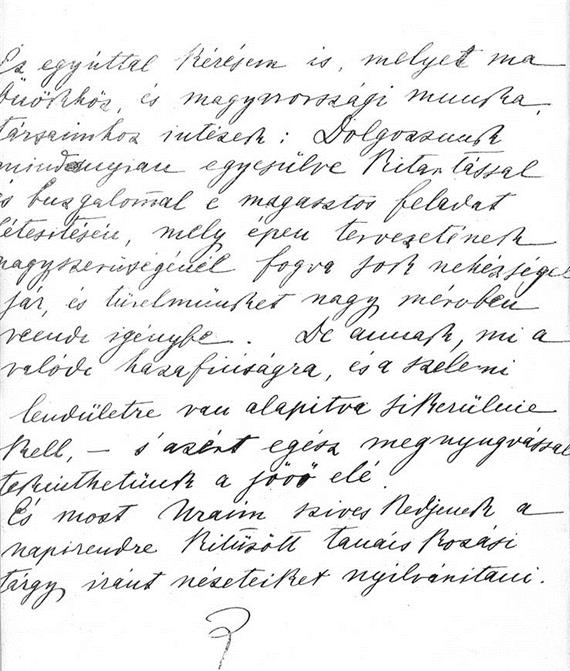 Ez egyúttal kérésem is, melyet ma
önökhöz, és magyarországi munka,
társaimhoz intézek: Dolgozzunk
mindnyian egyesülve kitartással
és buzgalommal e magasztos feladat
létesítésén, mely épen tervezetének
nagyszerűségénél fogva sok nehézséggel
jár, és türelmünket nagy mérvben
veendi igénybe. De annak, mi a
valódi hazafiuságra, és a szellemi
lendületre van alapitva sikerülnie
kell, – s' azért egész megnyugvással
tekinthetünk a jövő elé.
És most Uraim sziveskedjenek a
napirendre kitüzött tanácskozási
tárgy iránt nézeteiket nyilvánitani.